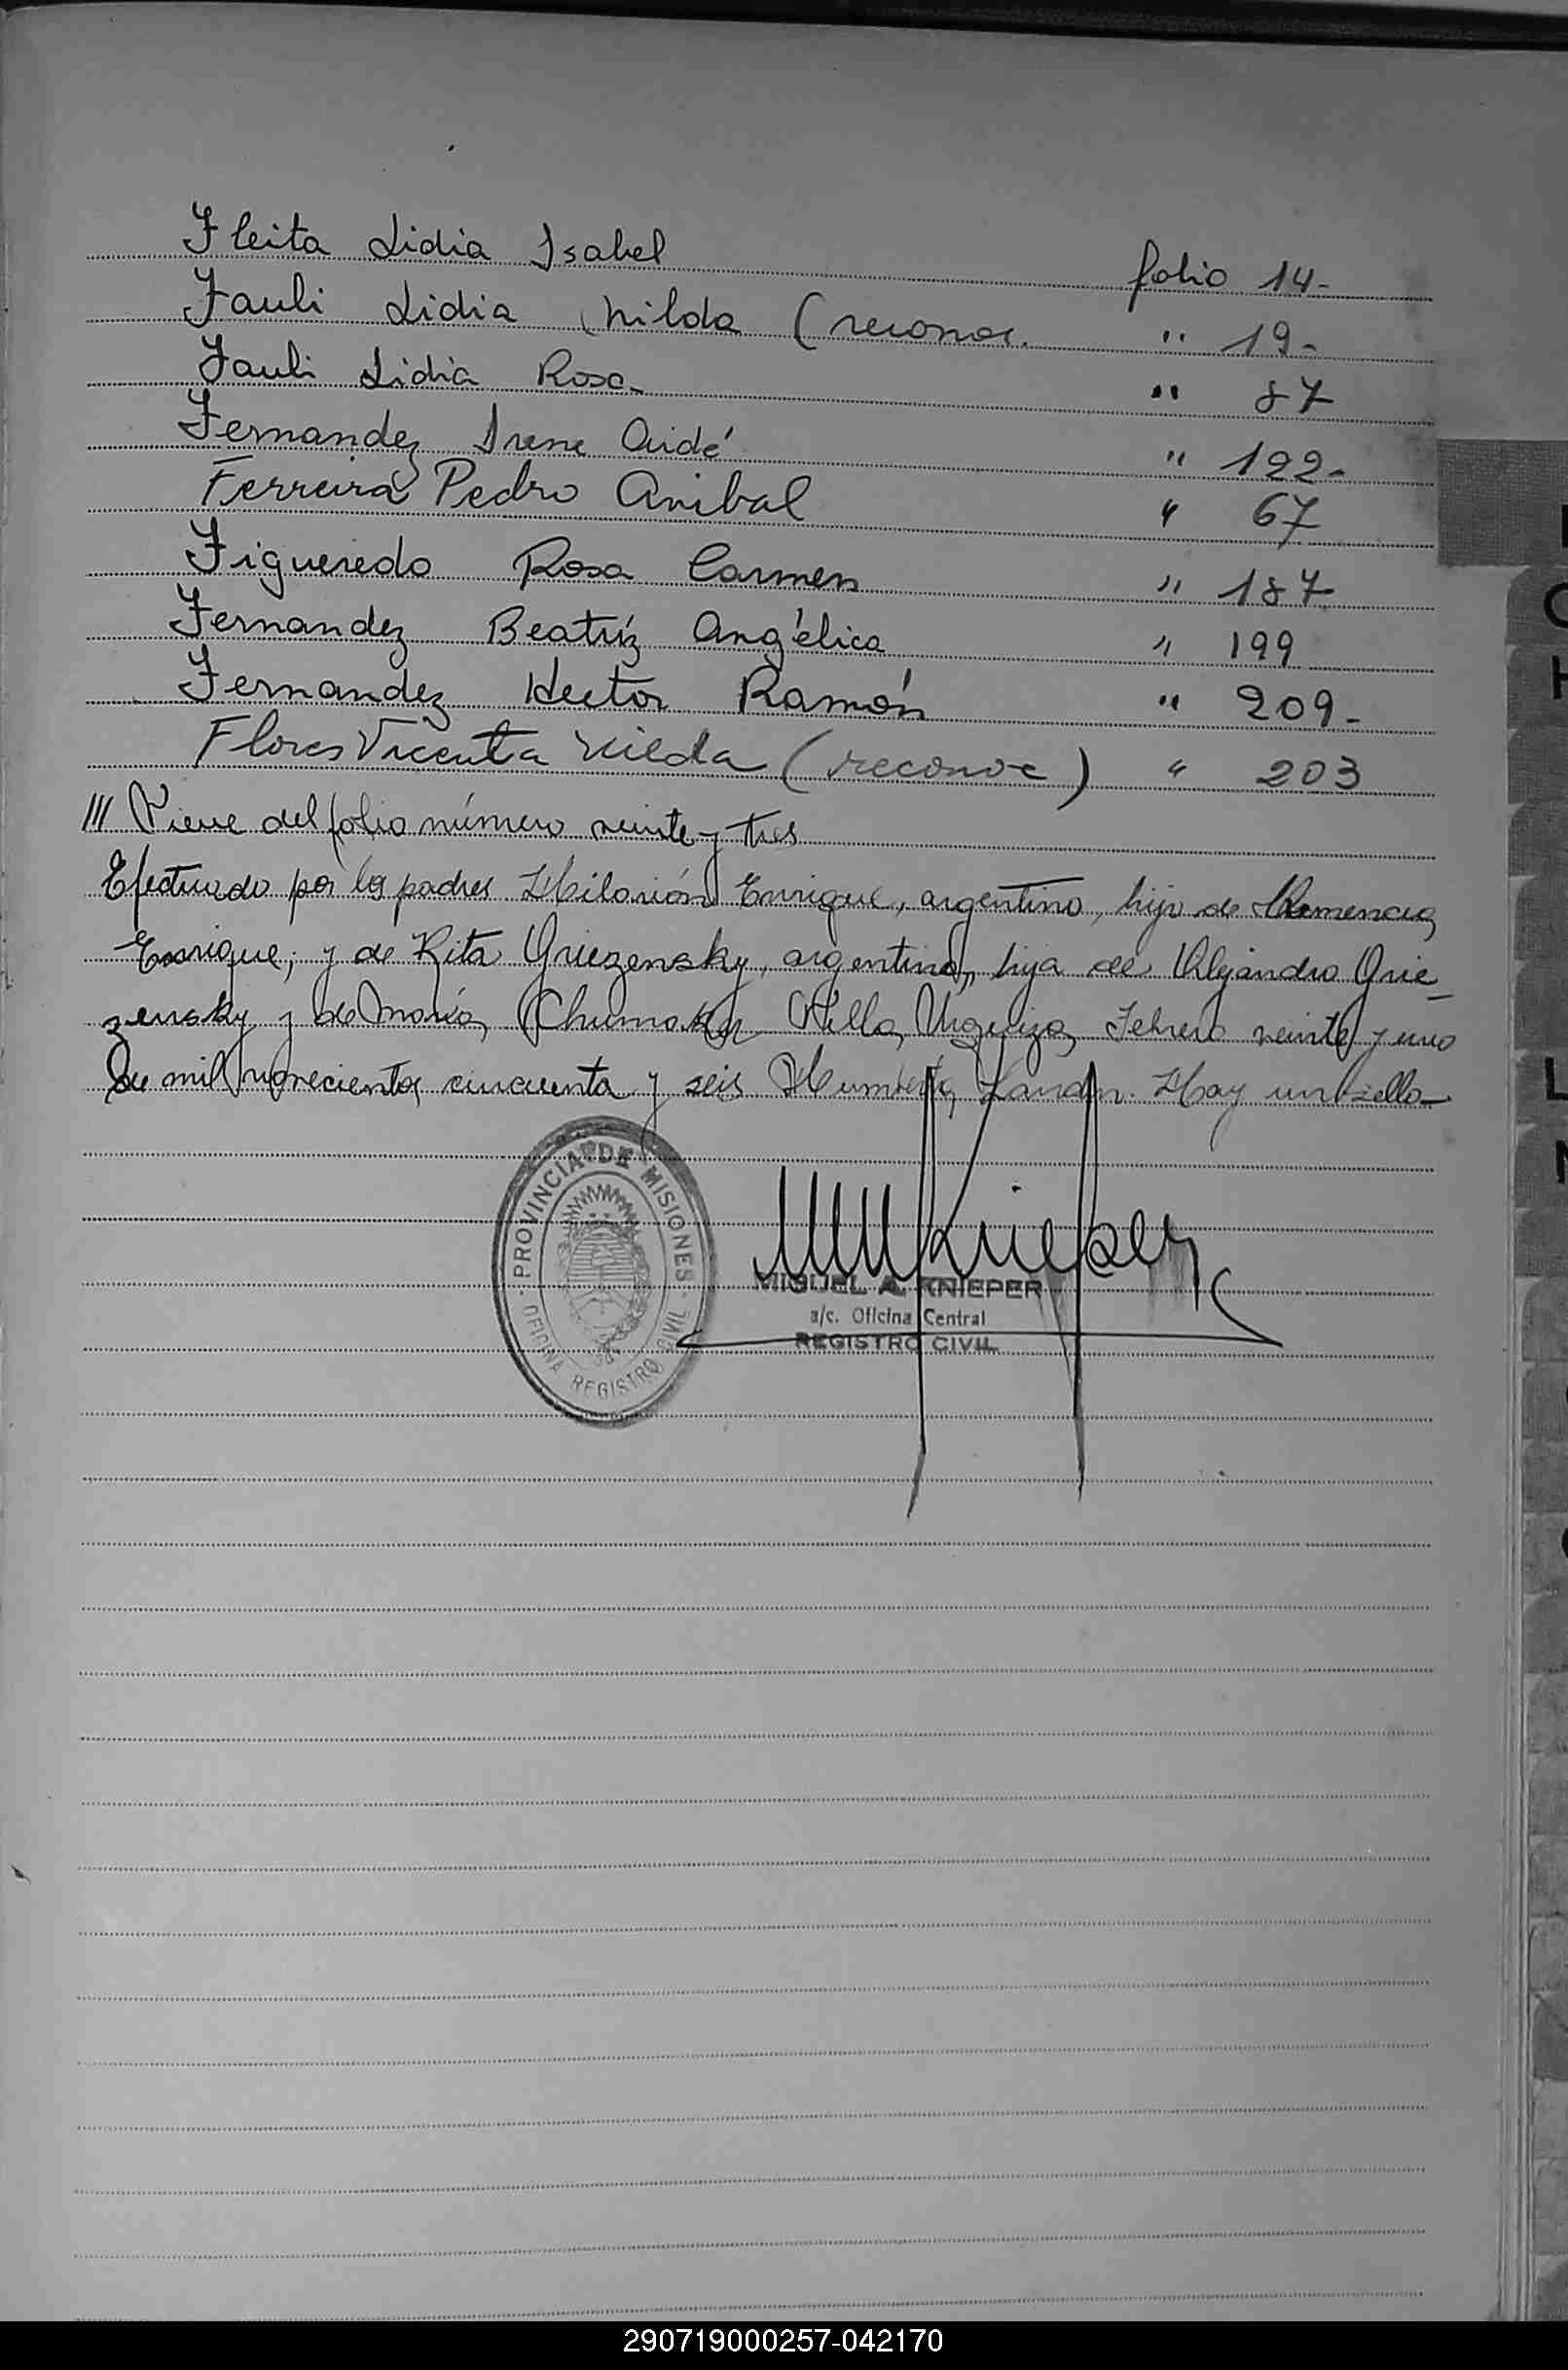 Fleita Lidia Isabel folio 14-
Fauli Lidia Nilda (reconoc. " 19-
Fauli Lidia Rosa- " 87
Fernandez Irene Aidé " 122-
Ferreira Pedro Anibal " 67
Figueredo Rosa Carmen " 187
Fernandez Beatríz Angélica " 199
Fernandez Hector Ramón " 209-
Flores Vicenta Nilda (reconoc) " 203
/// Viene del folio número veinte y tres
Efectuado por los padres Hilarión Enrique, argentino, hijo de Clemencia
Enrique; y de Rita Griezensky, argentina, hija de Alejandro Grie-
zensky y de María Villa Urquiza, Febrero veinte y uno
de mil novecientos cincuenta y seis Humberto Hay un sello-
PROVINCIA DE MISIONES
OFICINA REGISTRO CIVIL
MIGUEL A. KNIEPER
a/c. Oficina Central
REGISTRO CIVIL
290719000257-042170